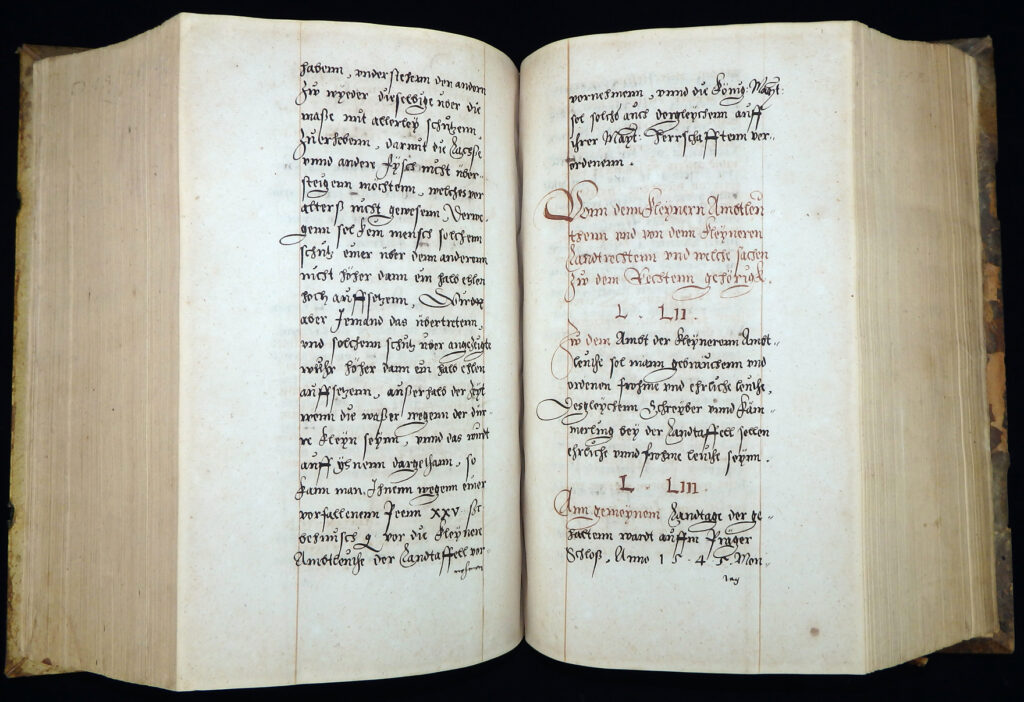 habenn, understehenn den andern
zu wyeder dieselbige uber die
maße mit allerley schutzenn
zu erhebenn, darmit die Lachße
unnd andere Fysch nicht uber-
steigenn mochtenn, welches vor
alterß nicht gewesenn, Derwe-
genn sol kein mensch solchenn
schutz einer uber denn anderenn
nicht höher dann ein halb ehlen
hoch auffsetzenn, Wurde
aber Jemand das ubertretenn,
und solchenn schutz uber angezeigte
höher dann ein halb ehlen
auffsetzenn, außerhalb der Zyt
wenn die waßer wegenn der dür-
re kleyn seynn, unnd das wurde
auff yhnenn dargethann, so
kann man Ihnenn wegenn einer
vorfallenenn Peen XXV ßc
behmisch g vor die Kleynen
Ambtleuthe der Landtaffell vor-
nehmen
vornehmenn, unnd die König: Mayt:
sol solchs auch dergleychenn auff
ihrer Mayt: Herrschafftenn ver-
ordenenn.
Vonn denn Kleynern Ambtleu-
thenn und von denn Kleyneren
Landtrechtenn und welche sachen
zu dem Rechtenn gehörigk.
L. LII.
Zu dem Ambt der Kleynerenn Ambt-
leuthe sol mann gebrauchenn und
ordenen frohme und ehrliche leuthe,
Desgleychenn Schreyber unnd Käm-
merling bey der Landtaffell sollen
ehrliche und frohme leuthe seynn.
L. LIII.
Ann gemeynem Landtage der ge-
haltenn wardt auffm Präger
Schloß, Anno 1545. Mon-
tag